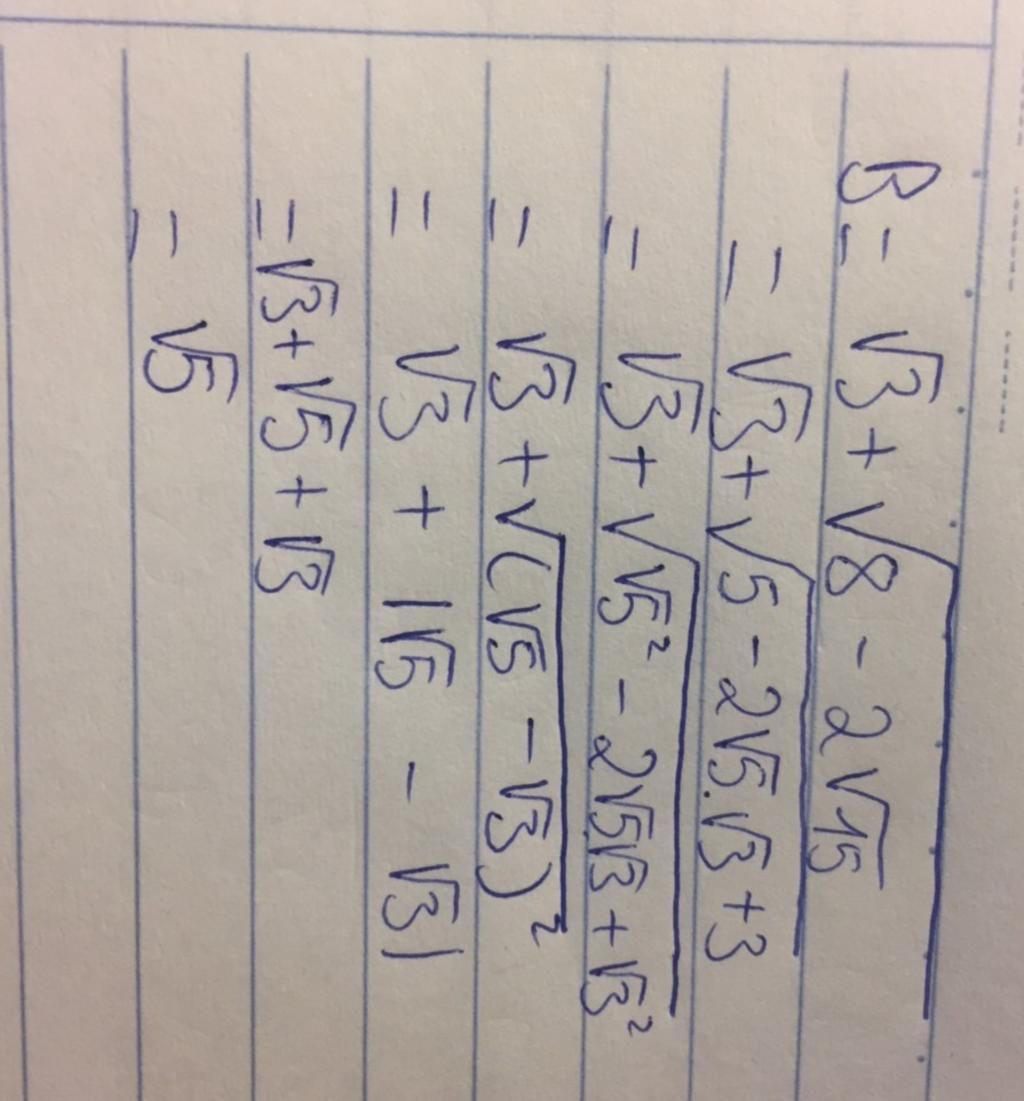 B = √3 + √(8 - 2√15)
= √3 + √(5 - 2√5.√3 + 3)
= √3 + √(√5² - 2√5.√3 + √3²)
= √3 + √((√5 - √3)²)
= √3 + |√5 - √3|
= √3 + √5 + √3
= √5